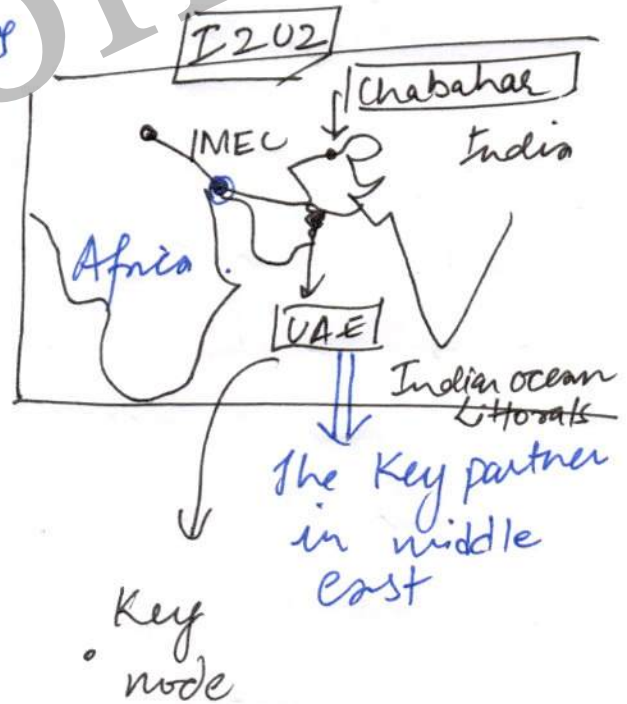 I2U2
Chabahar
IMEC
India
Africa
UAE
Indian ocean
Littorals
The Key partner
in middle
east
Key
node